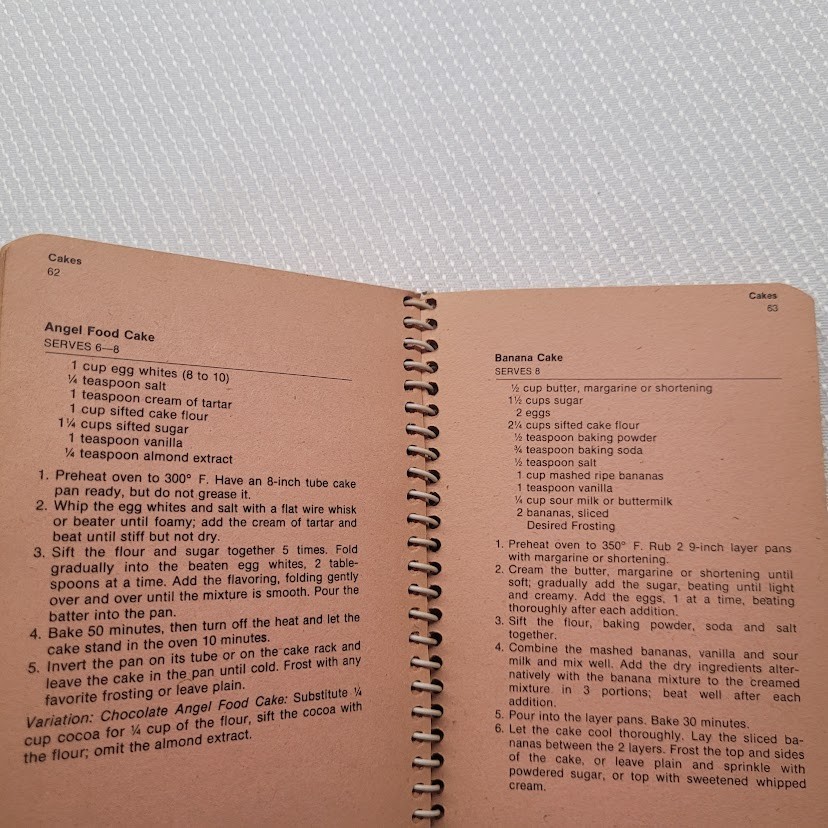 Cakes
62
Angel Food Cake
SERVES 6—8
1 cup egg whites (8 to 10)
¼ teaspoon salt
1 teaspoon cream of tartar
1 cup sifted cake flour
1¼ cups sifted sugar
1 teaspoon vanilla
¼ teaspoon almond extract
1. Preheat oven to 300° F. Have an 8-inch tube cake
pan ready, but do not grease it.
2. Whip the egg whites and salt with a flat wire whisk
or beater until foamy; add the cream of tartar and
beat until stiff but not dry.
3. Sift the flour and sugar together 5 times. Fold
gradually into the beaten egg whites, 2 table-
spoons at a time. Add the flavoring, folding gently
over and over until the mixture is smooth. Pour the
batter into the pan.
4. Bake 50 minutes, then turn off the heat and let the
cake stand in the oven 10 minutes.
5. Invert the pan on its tube or on the cake rack and
leave the cake in the pan until cold. Frost with any
favorite frosting or leave plain.
Variation: Chocolate Angel Food Cake: Substitute ¼
cup cocoa for ¼ cup of the flour, sift the cocoa with
the flour; omit the almond extract.
Cakes
63
Banana Cake
SERVES 8
½ cup butter, margarine or shortening
1½ cups sugar
2 eggs
2¼ cups sifted cake flour
½ teaspoon baking powder
¾ teaspoon baking soda
½ teaspoon salt
1 cup mashed ripe bananas
1 teaspoon vanilla
¼ cup sour milk or buttermilk
2 bananas, sliced
Desired Frosting
1. Preheat oven to 350° F. Rub 2 9-inch layer pans
with margarine or shortening.
2. Cream the butter, margarine or shortening until
soft; gradually add the sugar, beating until light
and creamy. Add the eggs, 1 at a time, beating
thoroughly after each addition.
3. Sift the flour, baking powder, soda and salt
together.
4. Combine the mashed bananas, vanilla and sour
milk and mix well. Add the dry ingredients alter-
natively with the banana mixture to the creamed
mixture in 3 portions; beat well after each
addition.
5. Pour into the layer pans. Bake 30 minutes.
6. Let the cake cool thoroughly. Lay the sliced ba-
nanas between the 2 layers. Frost the top and sides
of the cake, or leave plain and sprinkle with
powdered sugar, or top with sweetened whipped
cream.